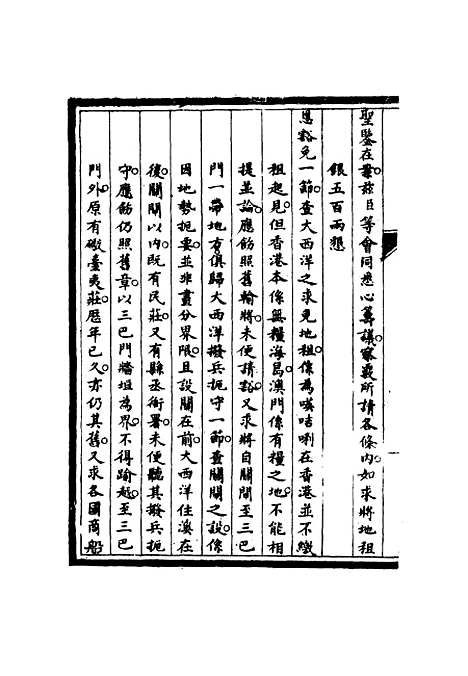 聖鑒在案茲臣等會同悉心籌議察覈所請各條內如求將地租
銀五百兩懇
恩豁免一節查大西洋之求免地租係為𠸄咭唎在香港並不繳
租起見但香港本係無糧海島澳門係有糧之地不能相
提並論應飭照舊輸將未便請豁又求將自關閘至三巴
門一帶地方俱歸大西洋撥兵扼守一節查關閘之設係
因地勢扼要並非畫分界限且設關在前大西洋住澳在
後關閘以內既有民莊又有縣丞衙署未便聽其撥兵扼
守應飭仍照舊章以三巴門牆垣為界不得踰越至三巴
門外原有礮臺夷莊歷年已久亦仍其舊又求各國商船